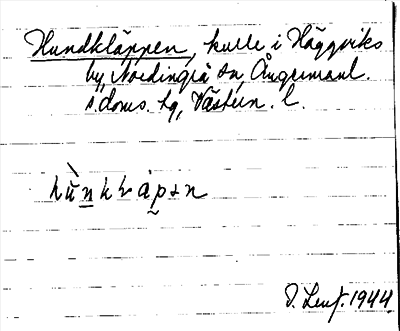 Hundkläppen, kulle i Häggviks
by, Nordingrå sn, Ångermanl.
s. doms. hg, Västern. l.
O. Leuf. 1944.